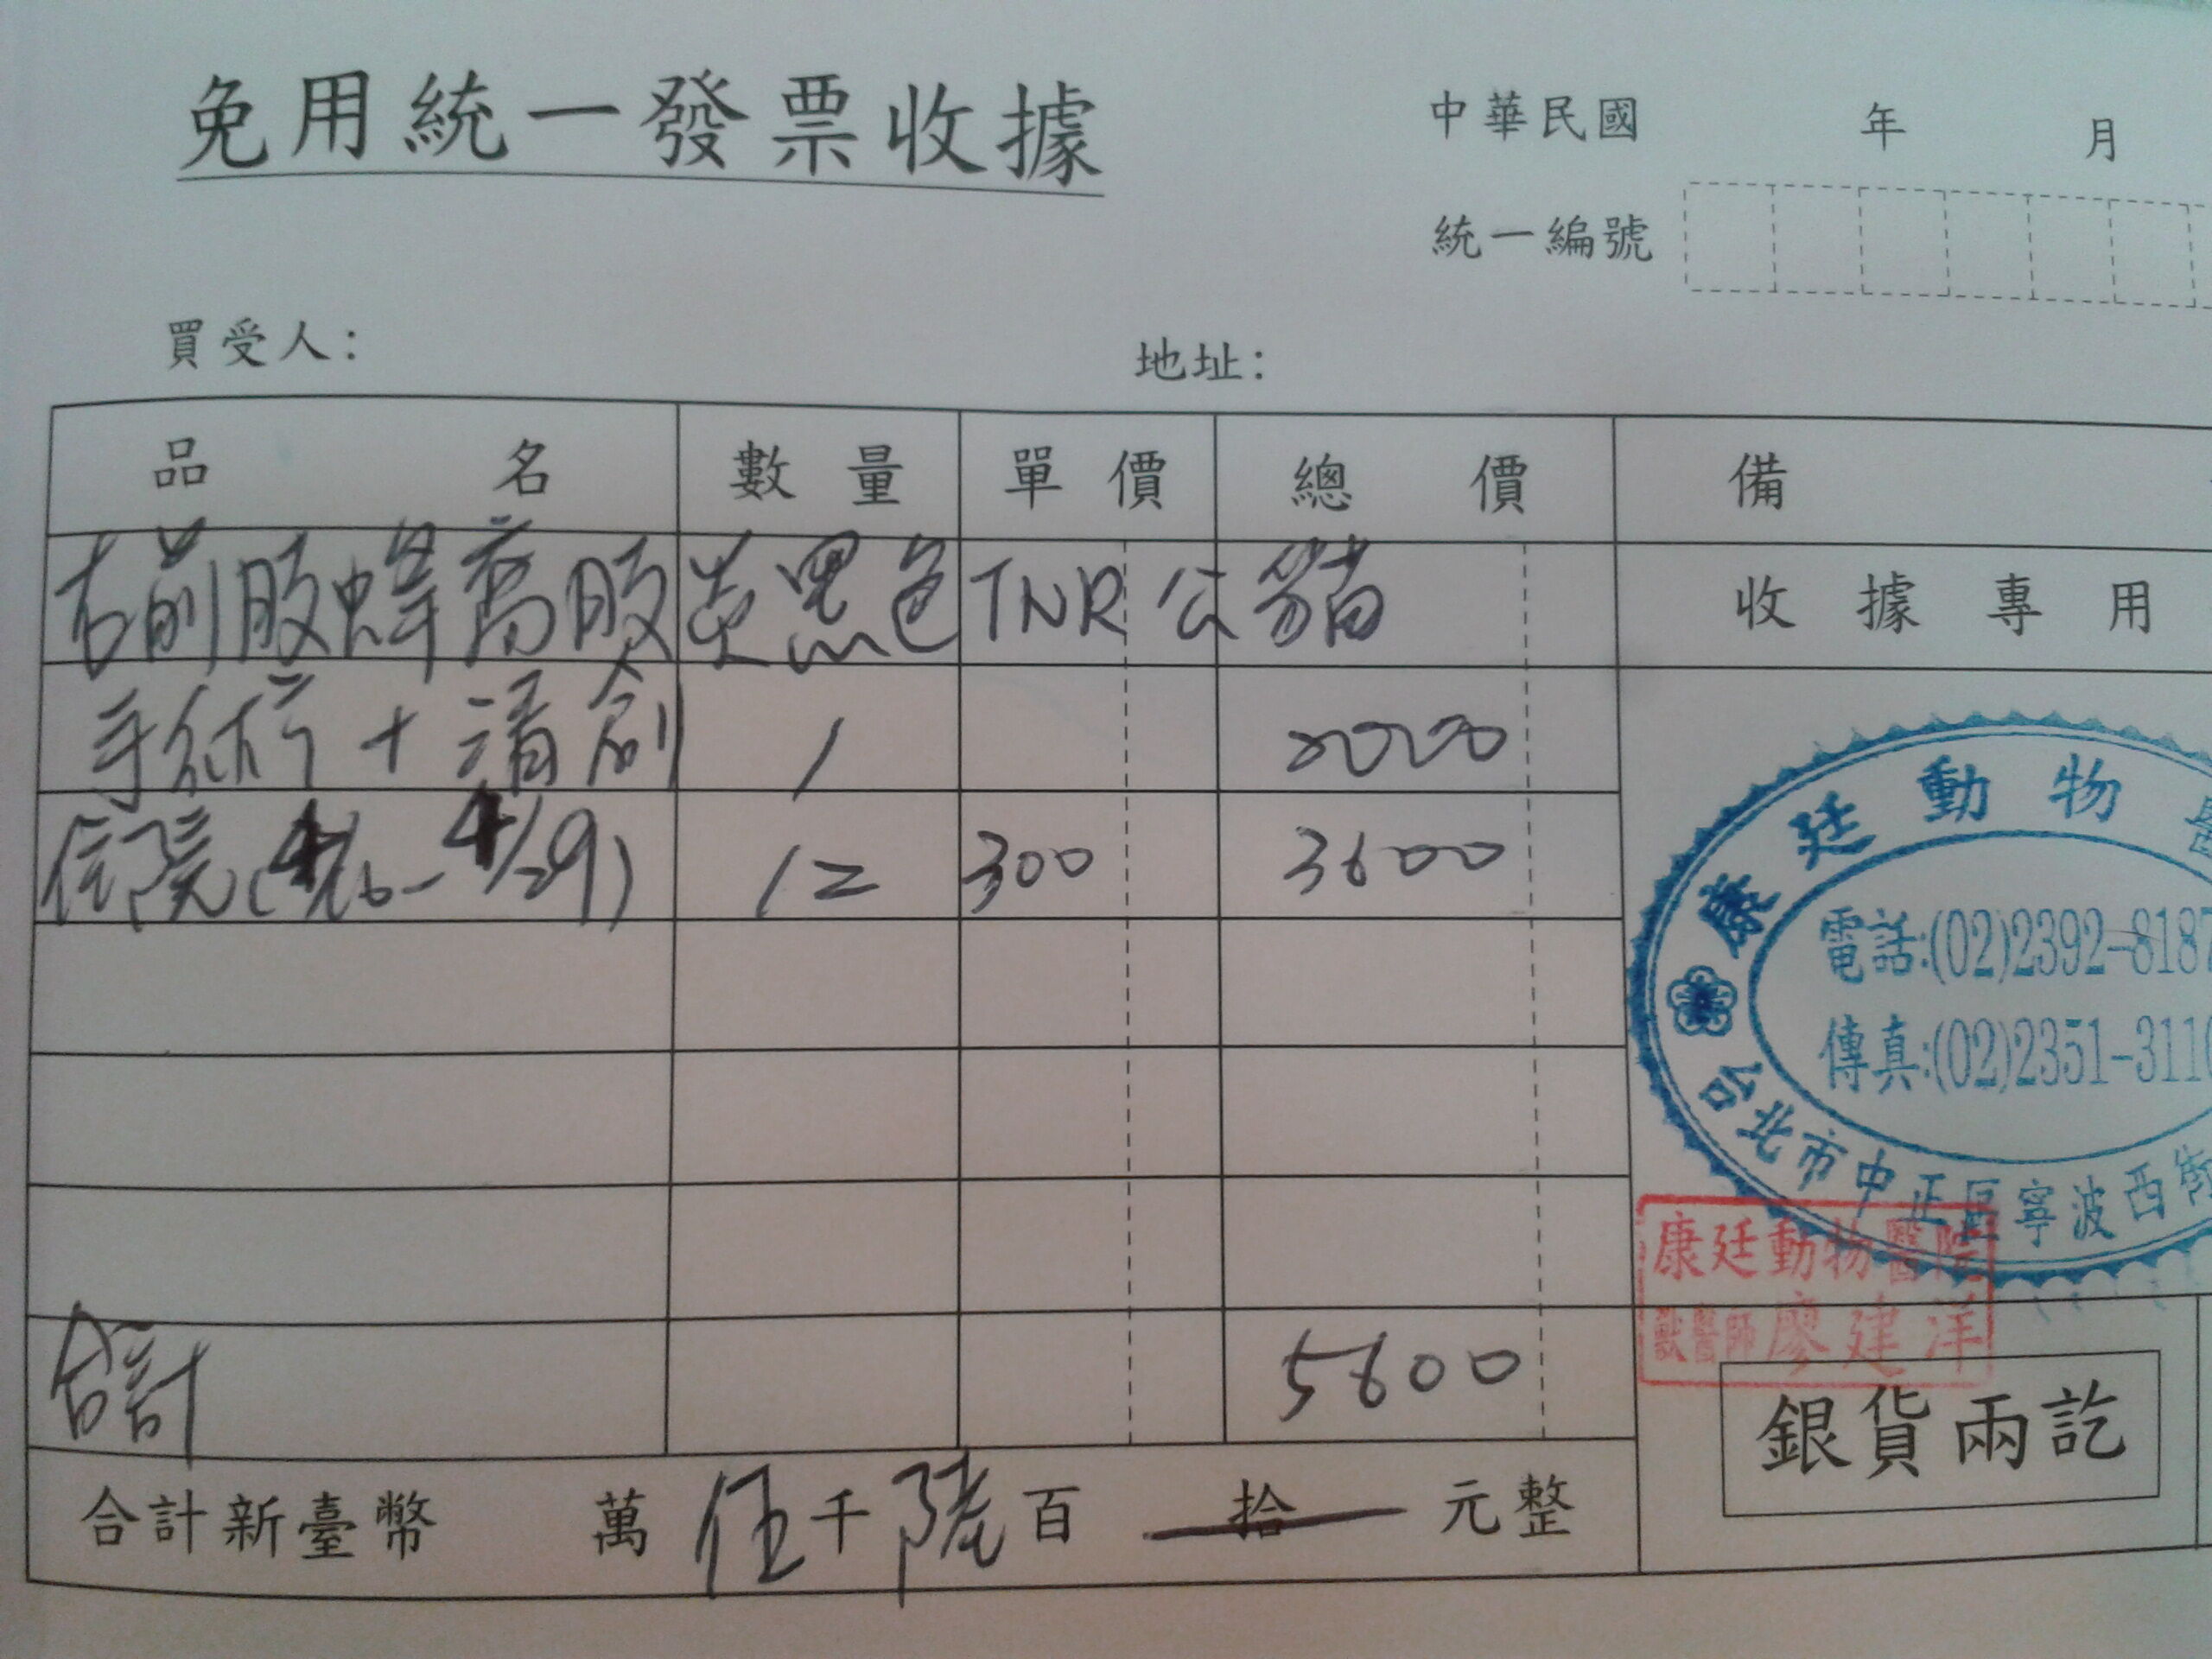 免用統一發票收據
中華民國 年 月
統一編號
買受人：
地址：
品名 數量 單價 總價 備
右前肢蜂窩肢炎黑色TNR公貓
收據專用
手術+清創 1 2000
住院( - 4/29) 12 300 3600
康廷動物
電話:(02)2392-8187
傳真:(02)2351-311
台北市中正區寧波西街
康廷動物醫院
獸醫師廖建洋
合計 5600
銀貨兩訖
合計新臺幣 萬 伍千陸百 拾 元整